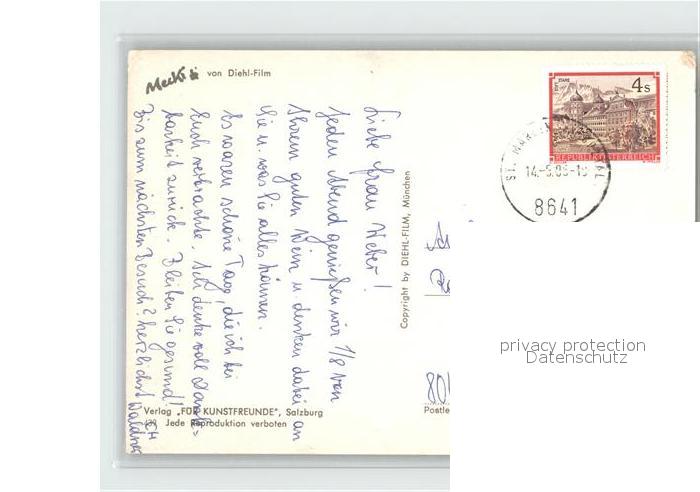 Mecki von Diehl-Film
Liebe Frau Weber!
Jeden Abend genießen wir 1/8 von
Ihrem guten Wein u. denken dabei an
Sie u. was Sie alles können.
Es waren schöne Tage, die ich bei
Euch verbrachte. Ich denke voll Dank-
barkeit zurück. Bleiben Sie gesund!
Bis zum nächsten Besuch? herzlichst Waldner
Verlag „FÜR KUNSTFREUNDE“, Salzburg
139 Jede Reproduktion verboten
Copyright by DIEHL-FILM, München
STIFT STAMS
4 S
REPUBLIK ÖSTERREICH
14.-5.86-1
8641
80
Postle
privacy protection
Datenschutz